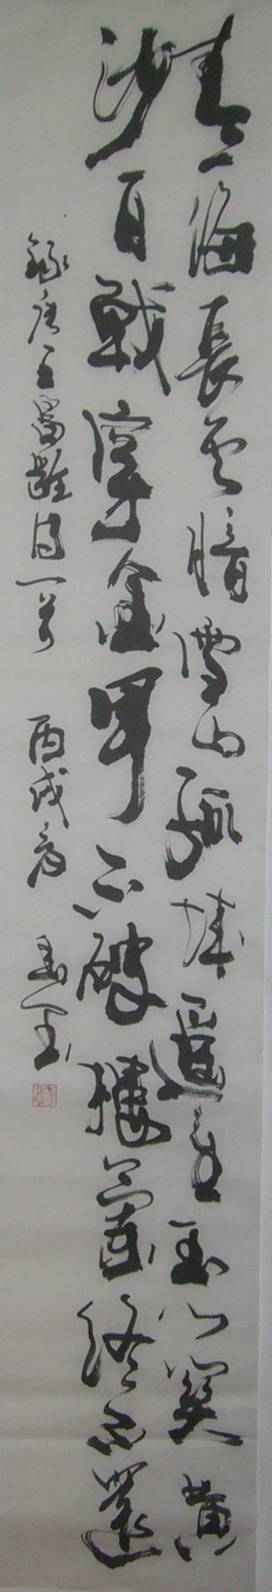 青海長雲暗雪山孤城遥望玉門關黄
沙百戰穿金甲不破樓蘭終不還
錄唐王昌齡詩一首 丙戌